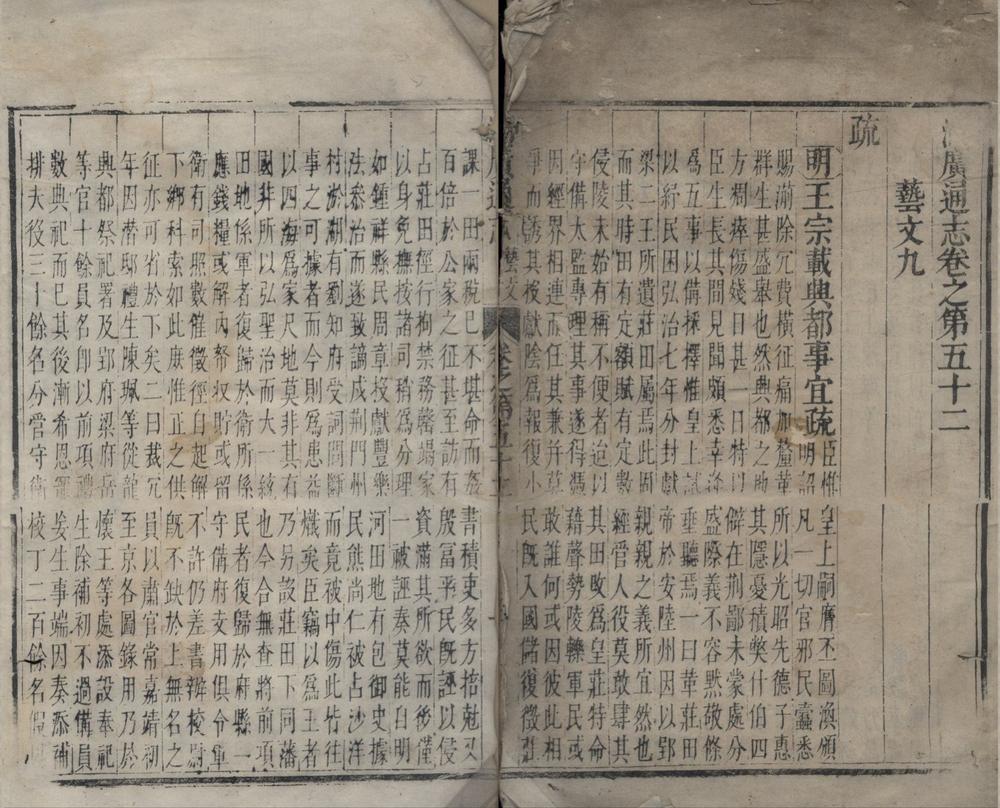 湖廣通志卷之第五十二
藝文九
疏
明王宗載興都事宜疏臣惟皇上嗣膺丕圖渙頒
明詔凡一切官邪民蠹悉
賜湔除冗費橫征痛加釐革所以光昭先德子惠
群生甚盛舉也然興都之地其隱憂積弊什伯四
方凋瘁傷殘日甚一日特以僻在荆鄙未蒙處分
臣生長其間見聞頗悉幸逢盛際義不容默敬條
爲五事以備採擇惟皇上試垂聽焉一曰革莊田
以紓民困弘治七年分封獻帝於安陸州因以郢
梁二王所遺莊田屬焉此固親親之義所宜然也
而其時田有定額賦有定數經管人役莫敢肆其
侵陵未始有稱不便者迨以其田收爲皇莊特命
守備太監專理其事遂得憑藉聲勢陵轢軍民或
因經界相連而任其兼并莫敢誰何或因彼此相
爭而誘其投獻陰爲報復小民既入國儲復徵莊
湖廣通志 藝文 卷之第五十二
課一田兩稅已不堪命而姦書積吏多方掊尅又
百倍於公家之征甚至訪有殷富平民既誣以侵
占莊田徑行拘禁務罄竭家資滿其所欲而後僅
以身免撫按諸司稍爲分理一被誣奏莫能自明
如鍾祥縣民周章投獻豐樂河田地有包御史據
法參治而遂致謫戍荆門州民熊尚仁被占沙洋
村茨湖有劉知府受詞問斷而竟被中傷此皆往
事之可據者而今則爲患益熾矣臣竊以爲王者
以四海爲家尺地莫非其有乃另設莊田下同藩
國非所以弘聖治而大一統也今合無查將前項
田地係軍者復歸於衛所係民者復歸於府縣一
應錢糧或解內帑收貯或留守備府支用俱令軍
衛有司照數催徵徑自起解不許仍差書辦校尉
下鄉科索如此庶惟正之供既不缺於上無名之
征亦可省於下矣二曰裁冗員以肅官常嘉靖初
年因潛邸禮生陳珮等從龍至京各圖錄用乃於
興都祭祀署及郢府梁府岳懷王等處添設奉祀
等官十餘員名即以前項禮生除補初不過備員
數典祀而已其後漸希恩寵妄生事端因奏添補
排夫後三十餘名分管守衛校丁二百餘名假